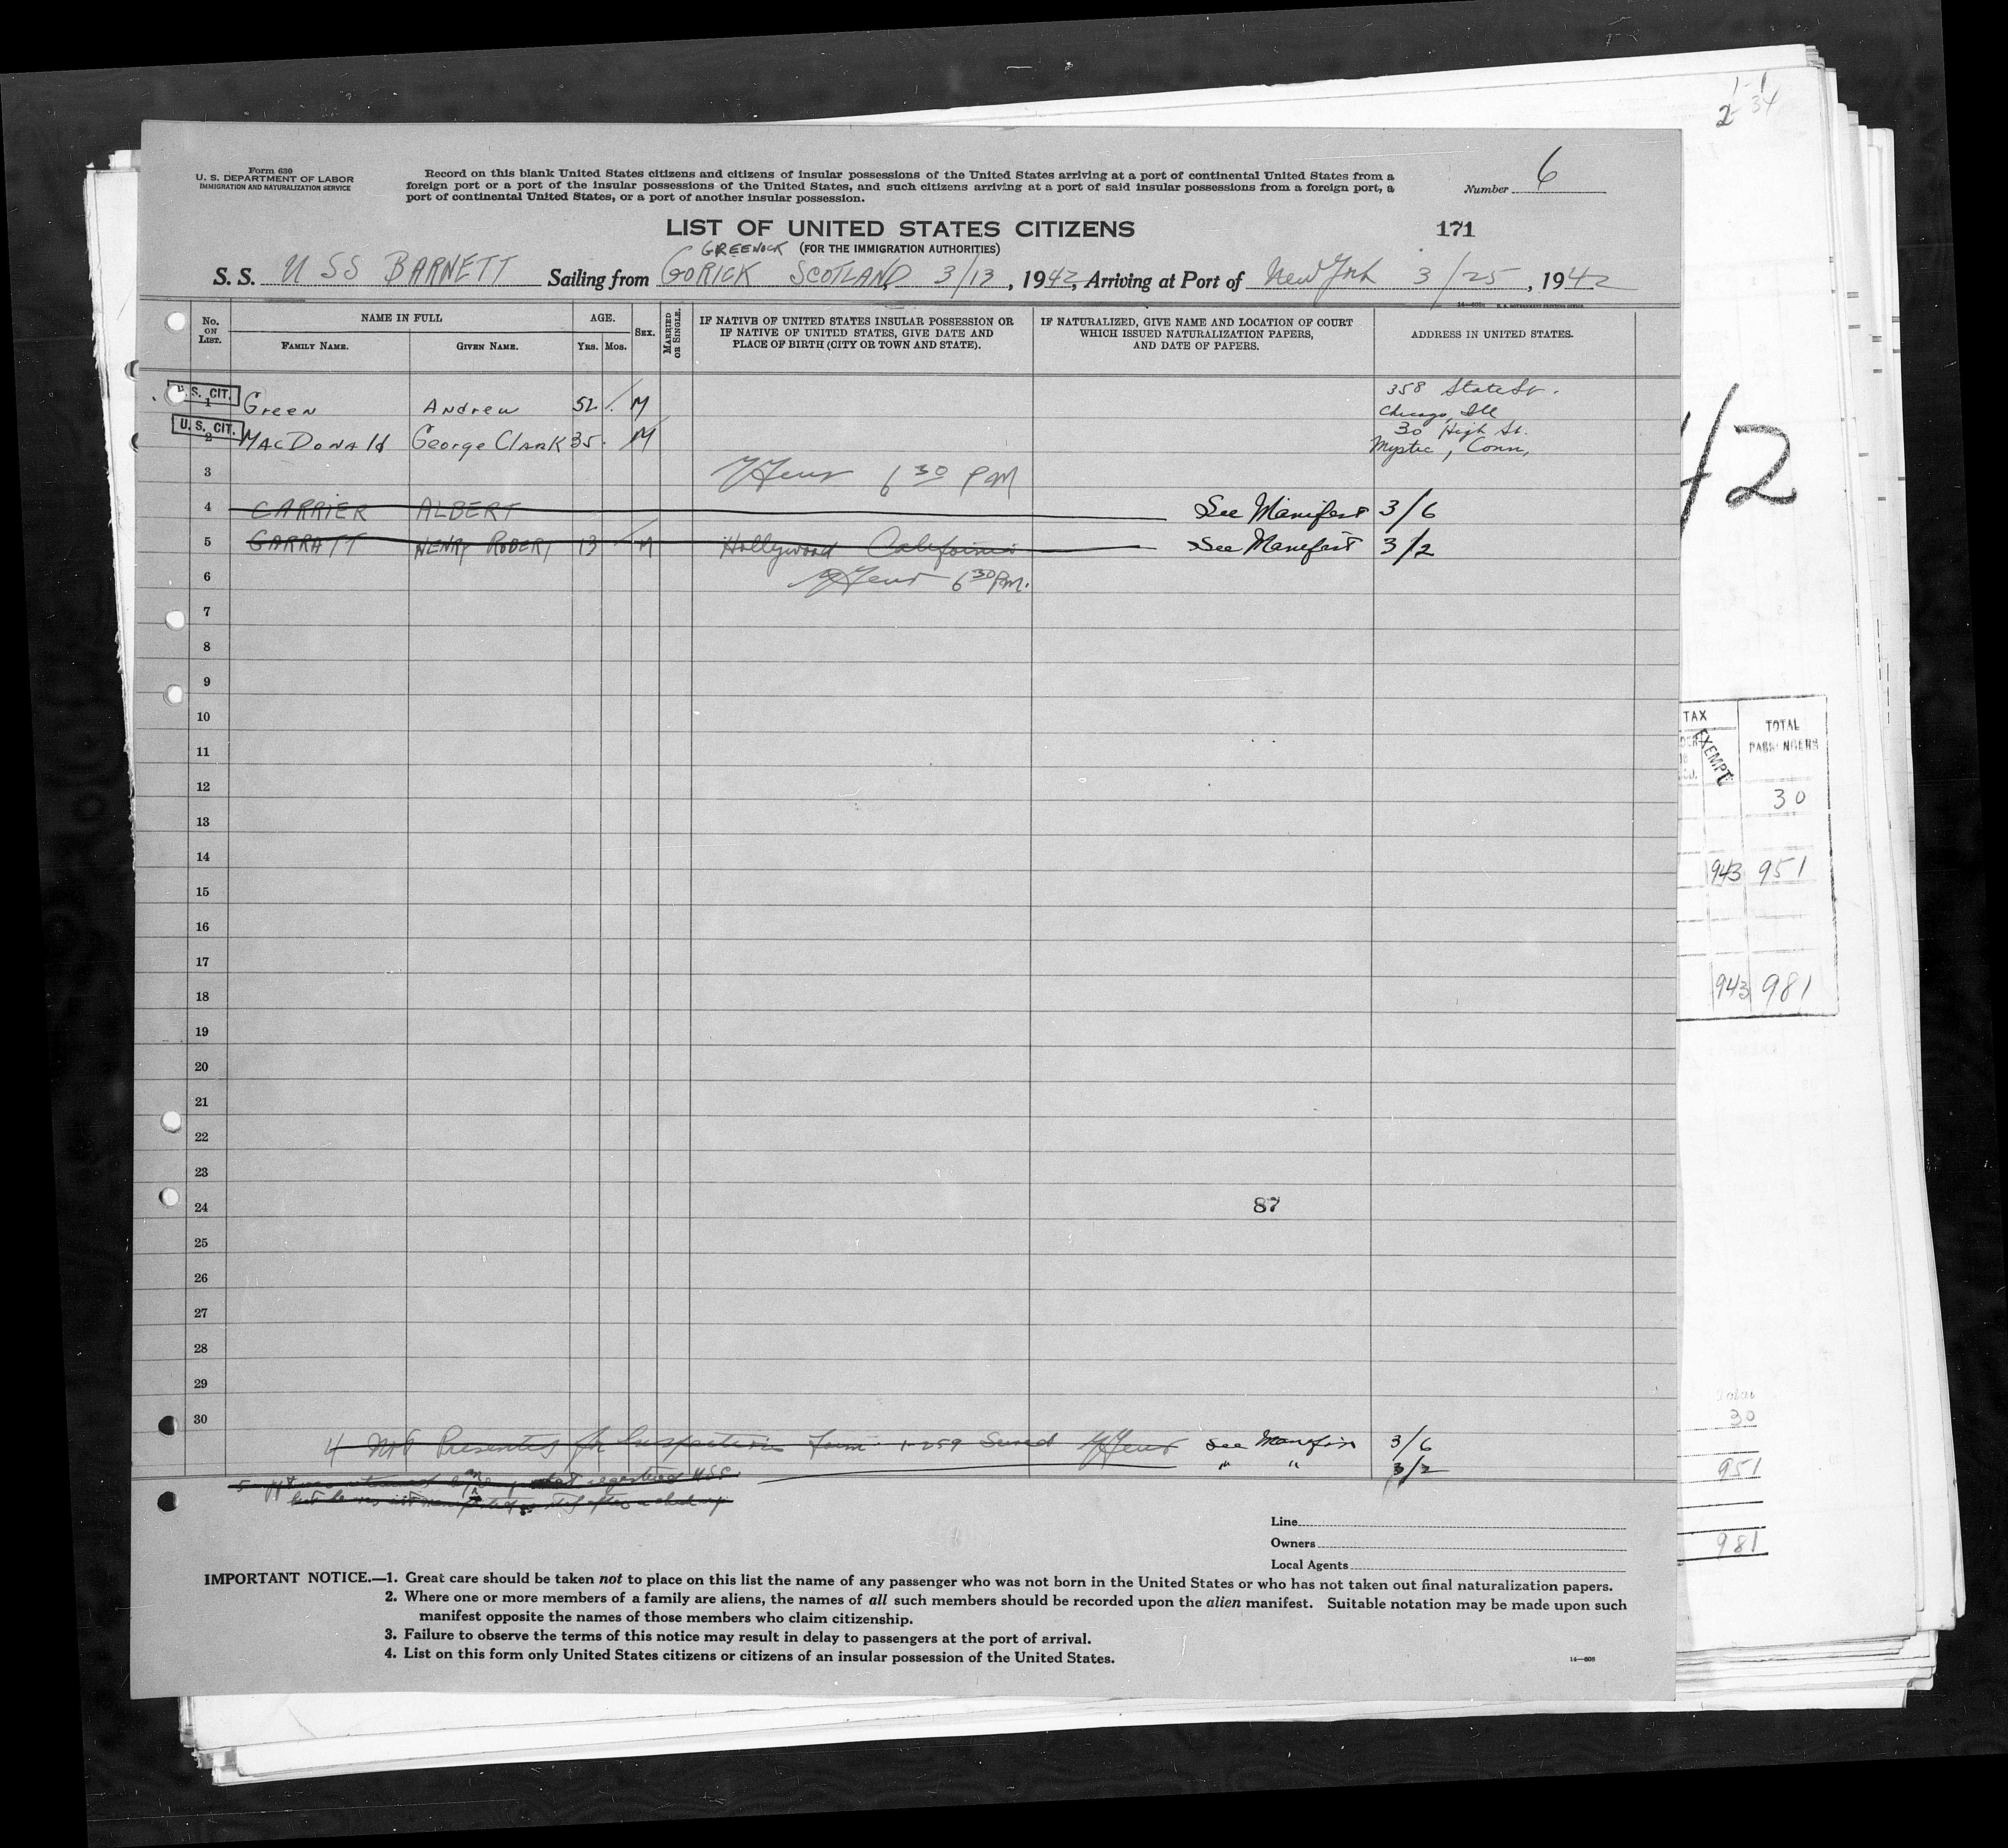 2 34
Form 630
U. S. DEPARTMENT OF LABOR
IMMIGRATION AND NATURALIZATION SERVICE
Record on this blank United States citizens and citizens of insular possessions of the United States arriving at a port of continental United States from a
foreign port or a port of the insular possessions of the United States, and such citizens arriving at a port of said insular possessions from a foreign port, a
port of continental United States, or a port of another insular possession.
Number 6
LIST OF UNITED STATES CITIZENS
171
GREENOCK (FOR THE IMMIGRATION AUTHORITIES)
S. S. USS BARNETT Sailing from GORICK SCOTLAND 3/13, 1942, Arriving at Port of New York 3/25, 1942
No. ON LIST.
NAME IN FULL
FAMILY NAME.
GIVEN NAME.
AGE.
YRS. MOS.
SEX.
MARRIED OR SINGLE.
IF NATIVE OF UNITED STATES INSULAR POSSESSION OR
IF NATIVE OF UNITED STATES, GIVE DATE AND
PLACE OF BIRTH (CITY OR TOWN AND STATE).
IF NATURALIZED, GIVE NAME AND LOCATION OF COURT
WHICH ISSUED NATURALIZATION PAPERS,
AND DATE OF PAPERS.
ADDRESS IN UNITED STATES.
U.S. CIT. 1 Green Andrew 52 M 358 State St.
Chicago, Ill
U.S. CIT. 2 MacDonald George Clark 35 M 30 High St.
Mystic, Conn,
3 6 30 PM
4 CARRIER ALBERT See Manifest 3/6
5 GARRATT HENRY ROBERT 13 M Hollywood California See Manifest 3/2
6 6 30 P.M.
7
8
9
10
11
12
13
14
15
16
17
18
19
20
21
22
23
24 87
25
26
27
28
29
30
4 Not Presented for Inspection Form 1-259 Served See Manifest 3/6
" " 3/2
Line
Owners
Local Agents
IMPORTANT NOTICE.—1. Great care should be taken not to place on this list the name of any passenger who was not born in the United States or who has not taken out final naturalization papers.
2. Where one or more members of a family are aliens, the names of all such members should be recorded upon the alien manifest. Suitable notation may be made upon such
manifest opposite the names of those members who claim citizenship.
3. Failure to observe the terms of this notice may result in delay to passengers at the port of arrival.
4. List on this form only United States citizens or citizens of an insular possession of the United States.
14—608
42
TAX
EXEMPT
TOTAL
PASSENGERS
30
943 951
943 981
Total
30
951
981